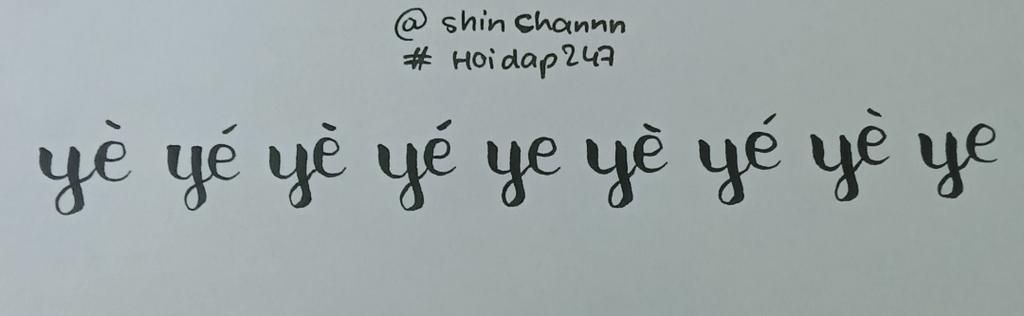 @ shin Channn
# Hoidap247
yè yé yè yé ye yè yé yè ye